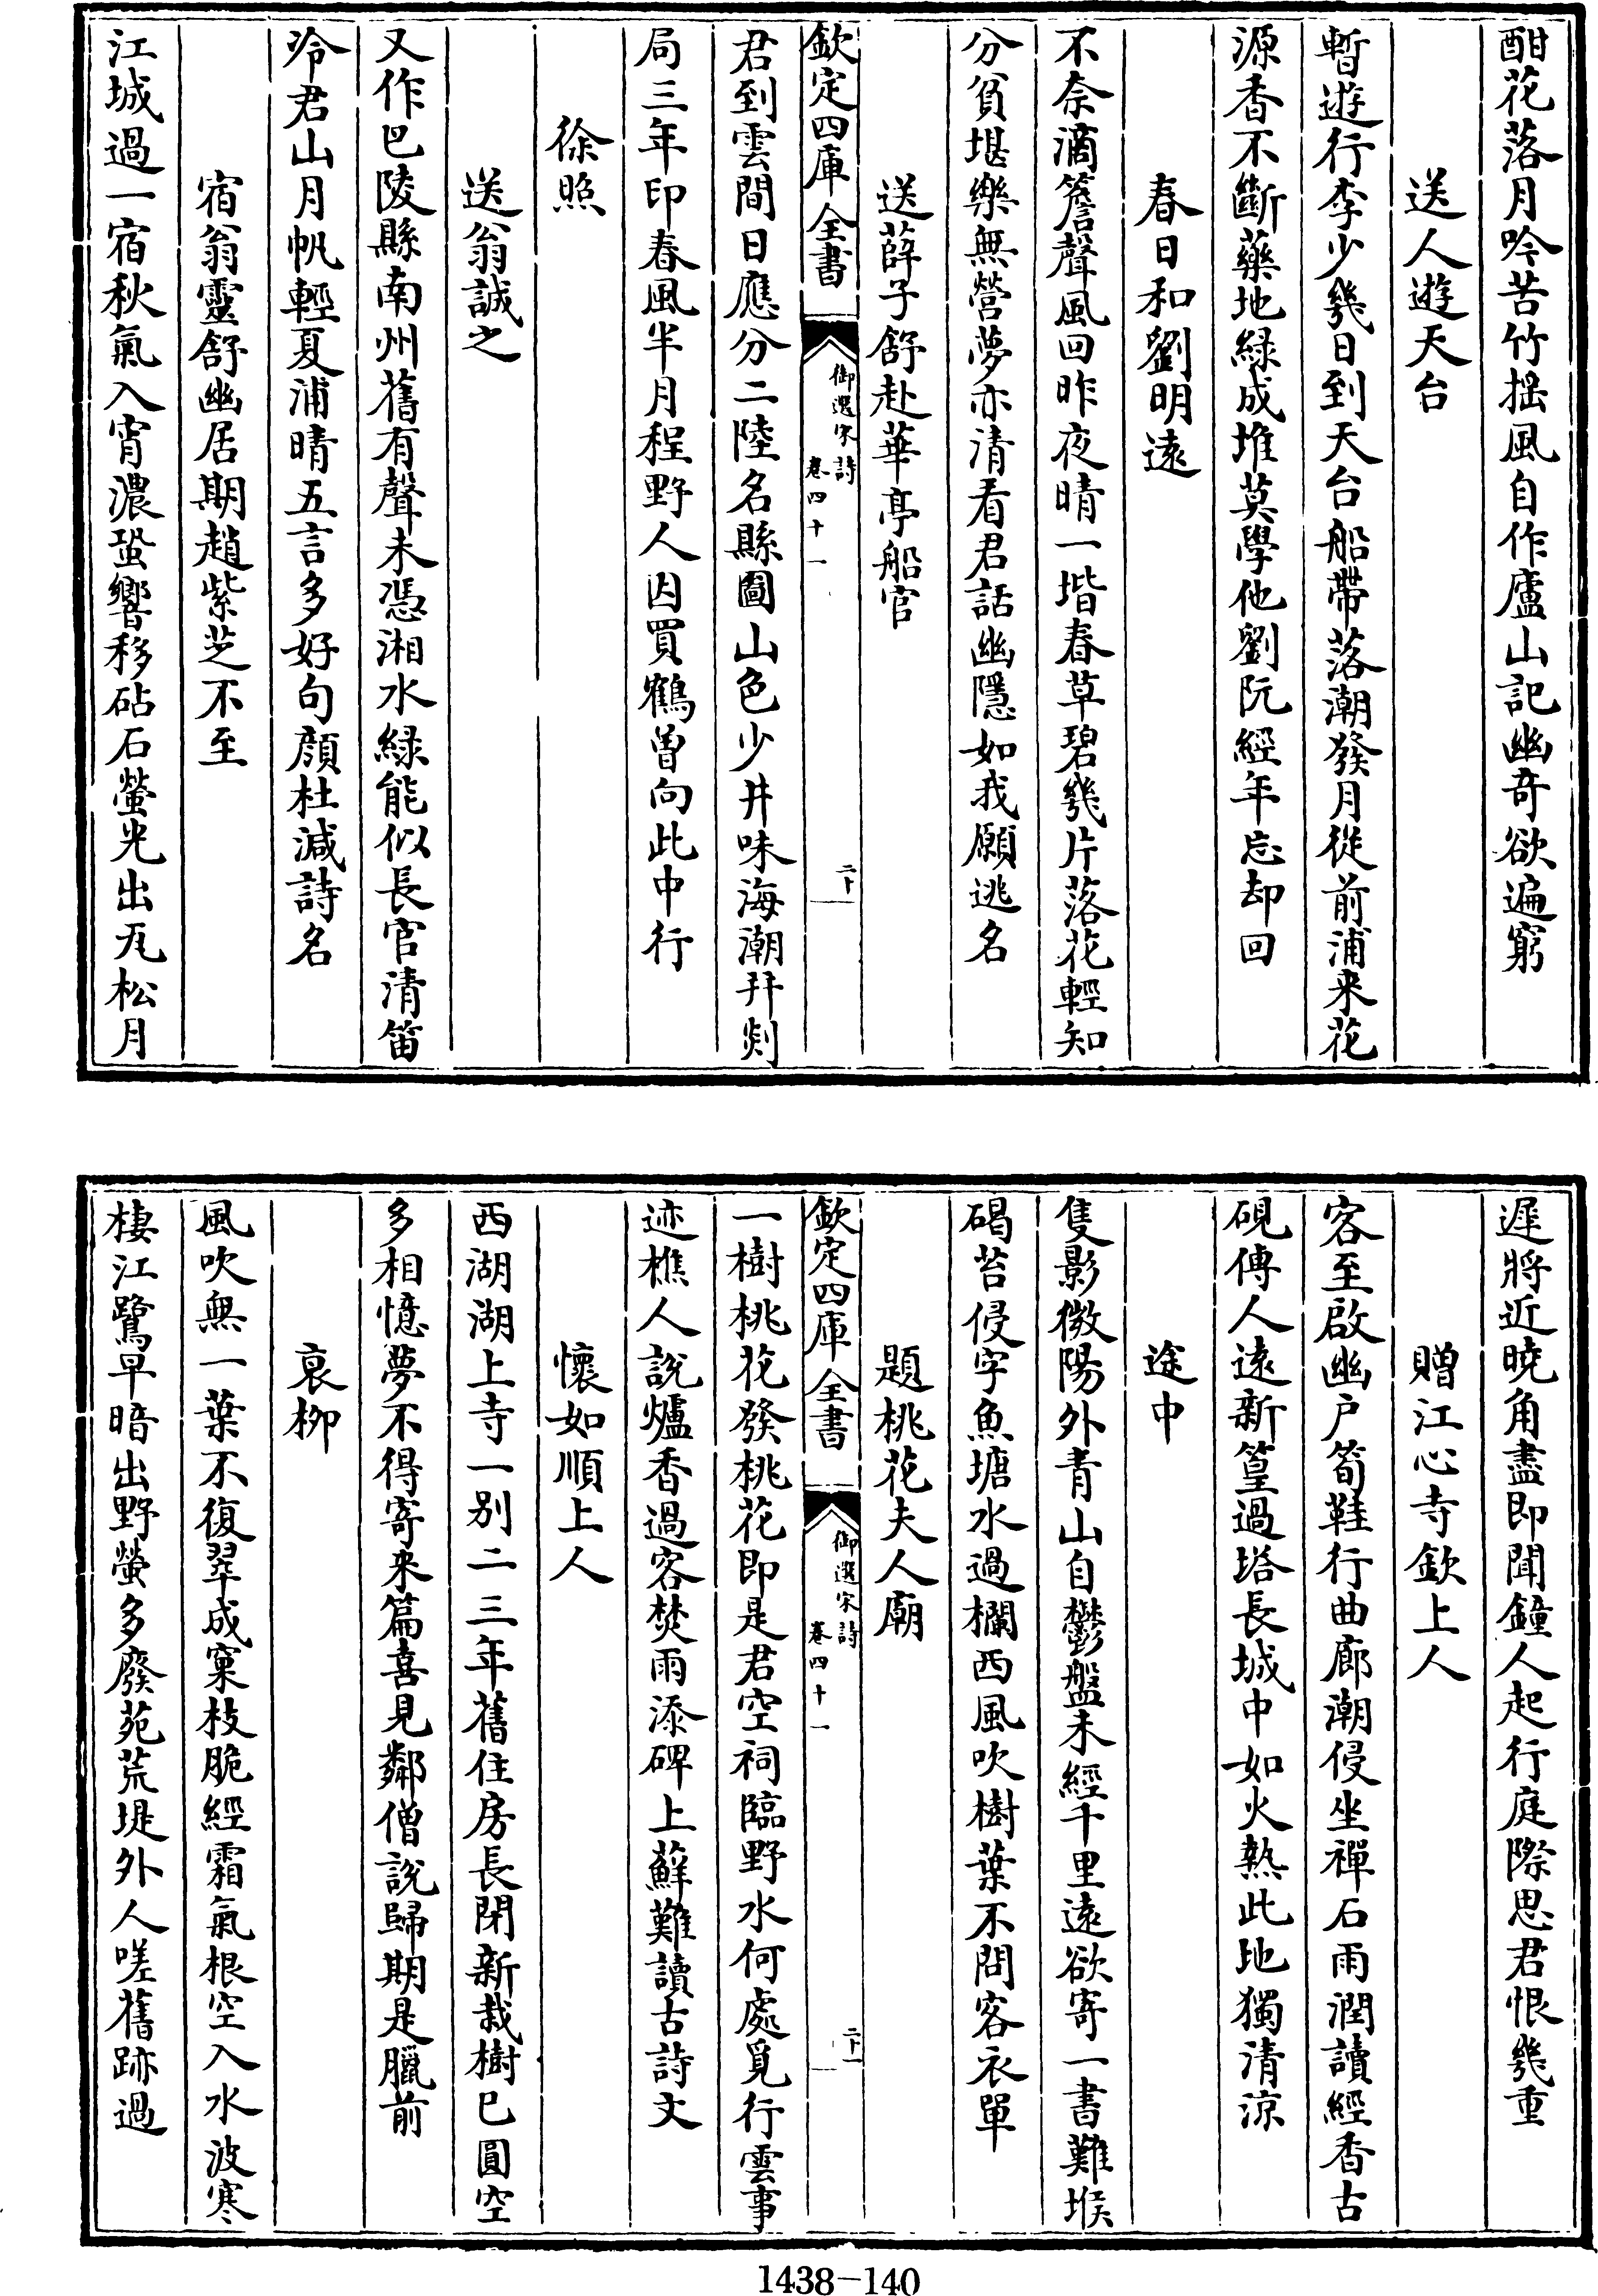 酣花落月吟苦竹揺風自作廬山記幽奇欲遍窮
送人遊天台
暫遊行李少幾日到天台船帶落潮發月從前浦来花
源香不斷藥地緑成堆莫學他劉阮經年忘却回
春日和劉明遠
不奈滴簷聲風回昨夜晴一堦春草碧幾片落花輕知
分貧堪樂無營夢亦清看君話幽隱如我願逃名
送薛子舒赴華亭船官
欽定四庫全書
御選宋詩
卷四十一
二十
君到雲間日應分二陸名縣圖山色少井味海潮幷剡
局三年印春風半月程野人因買鶴曽向此中行
徐照
送翁誠之
又作巴陵縣南州舊有聲未憑湘水緑能似長官清笛
冷君山月帆輕夏浦晴五言多好句頗杜減詩名
宿翁靈舒幽居期趙紫芝不至
江城過一宿秋氣入宵濃蛩響移砧石螢光出瓦松月
遲將近曉角盡即聞鐘人起行庭際思君恨幾重
贈江心寺欽上人
客至啟幽户筍鞋行曲廊潮侵坐禪石雨潤讀經香古
硯傳人逺新篁過塔長城中如火熱此地獨清涼
途中
隻影微陽外青山自鬱盤未經千里逺欲寄一書難堠
碣苔侵字魚塘水過欄西風吹樹葉不問客衣單
題桃花夫人廟
欽定四庫全書
御選宋詩
卷四十一
二十一
一樹桃花發桃花即是君空祠臨野水何處覓行雲事
迹樵人說爐香過客焚雨添碑上蘚難讀古詩文
懐如順上人
西湖湖上寺一别二三年舊住房長閉新栽樹已圓空
多相憶夢不得寄来篇喜見鄰僧說歸期是臘前
哀栁
風吹無一葉不復翠成窠枝脆經霜氣根空入水波寒
棲江鷺早暗出野螢多廢苑荒堤外人嗟舊跡過
1438-140